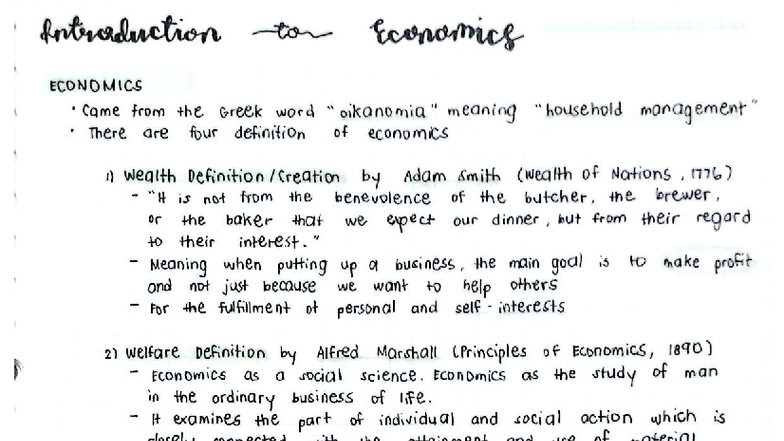 Introduction to Economics
ECONOMICS
• Came from the Greek word "oikanomia" meaning "household management"
• There are four definition of economics
1) Wealth Definition/Creation by Adam Smith (Wealth of Nations, 1776)
- "It is not from the benevolence of the butcher, the brewer,
or the baker that we expect our dinner, but from their regard
to their interest."
- Meaning when putting up a business, the main goal is to make profit
and not just because we want to help others
- For the fulfillment of personal and self-interests
2) Welfare Definition by Alfred Marshall (Principles of Economics, 1890)
- Economics as a social science. Economics as the study of man
in the ordinary business of life.
- It examines the part of individual and social action which is
closely connected with the attainment and use of material